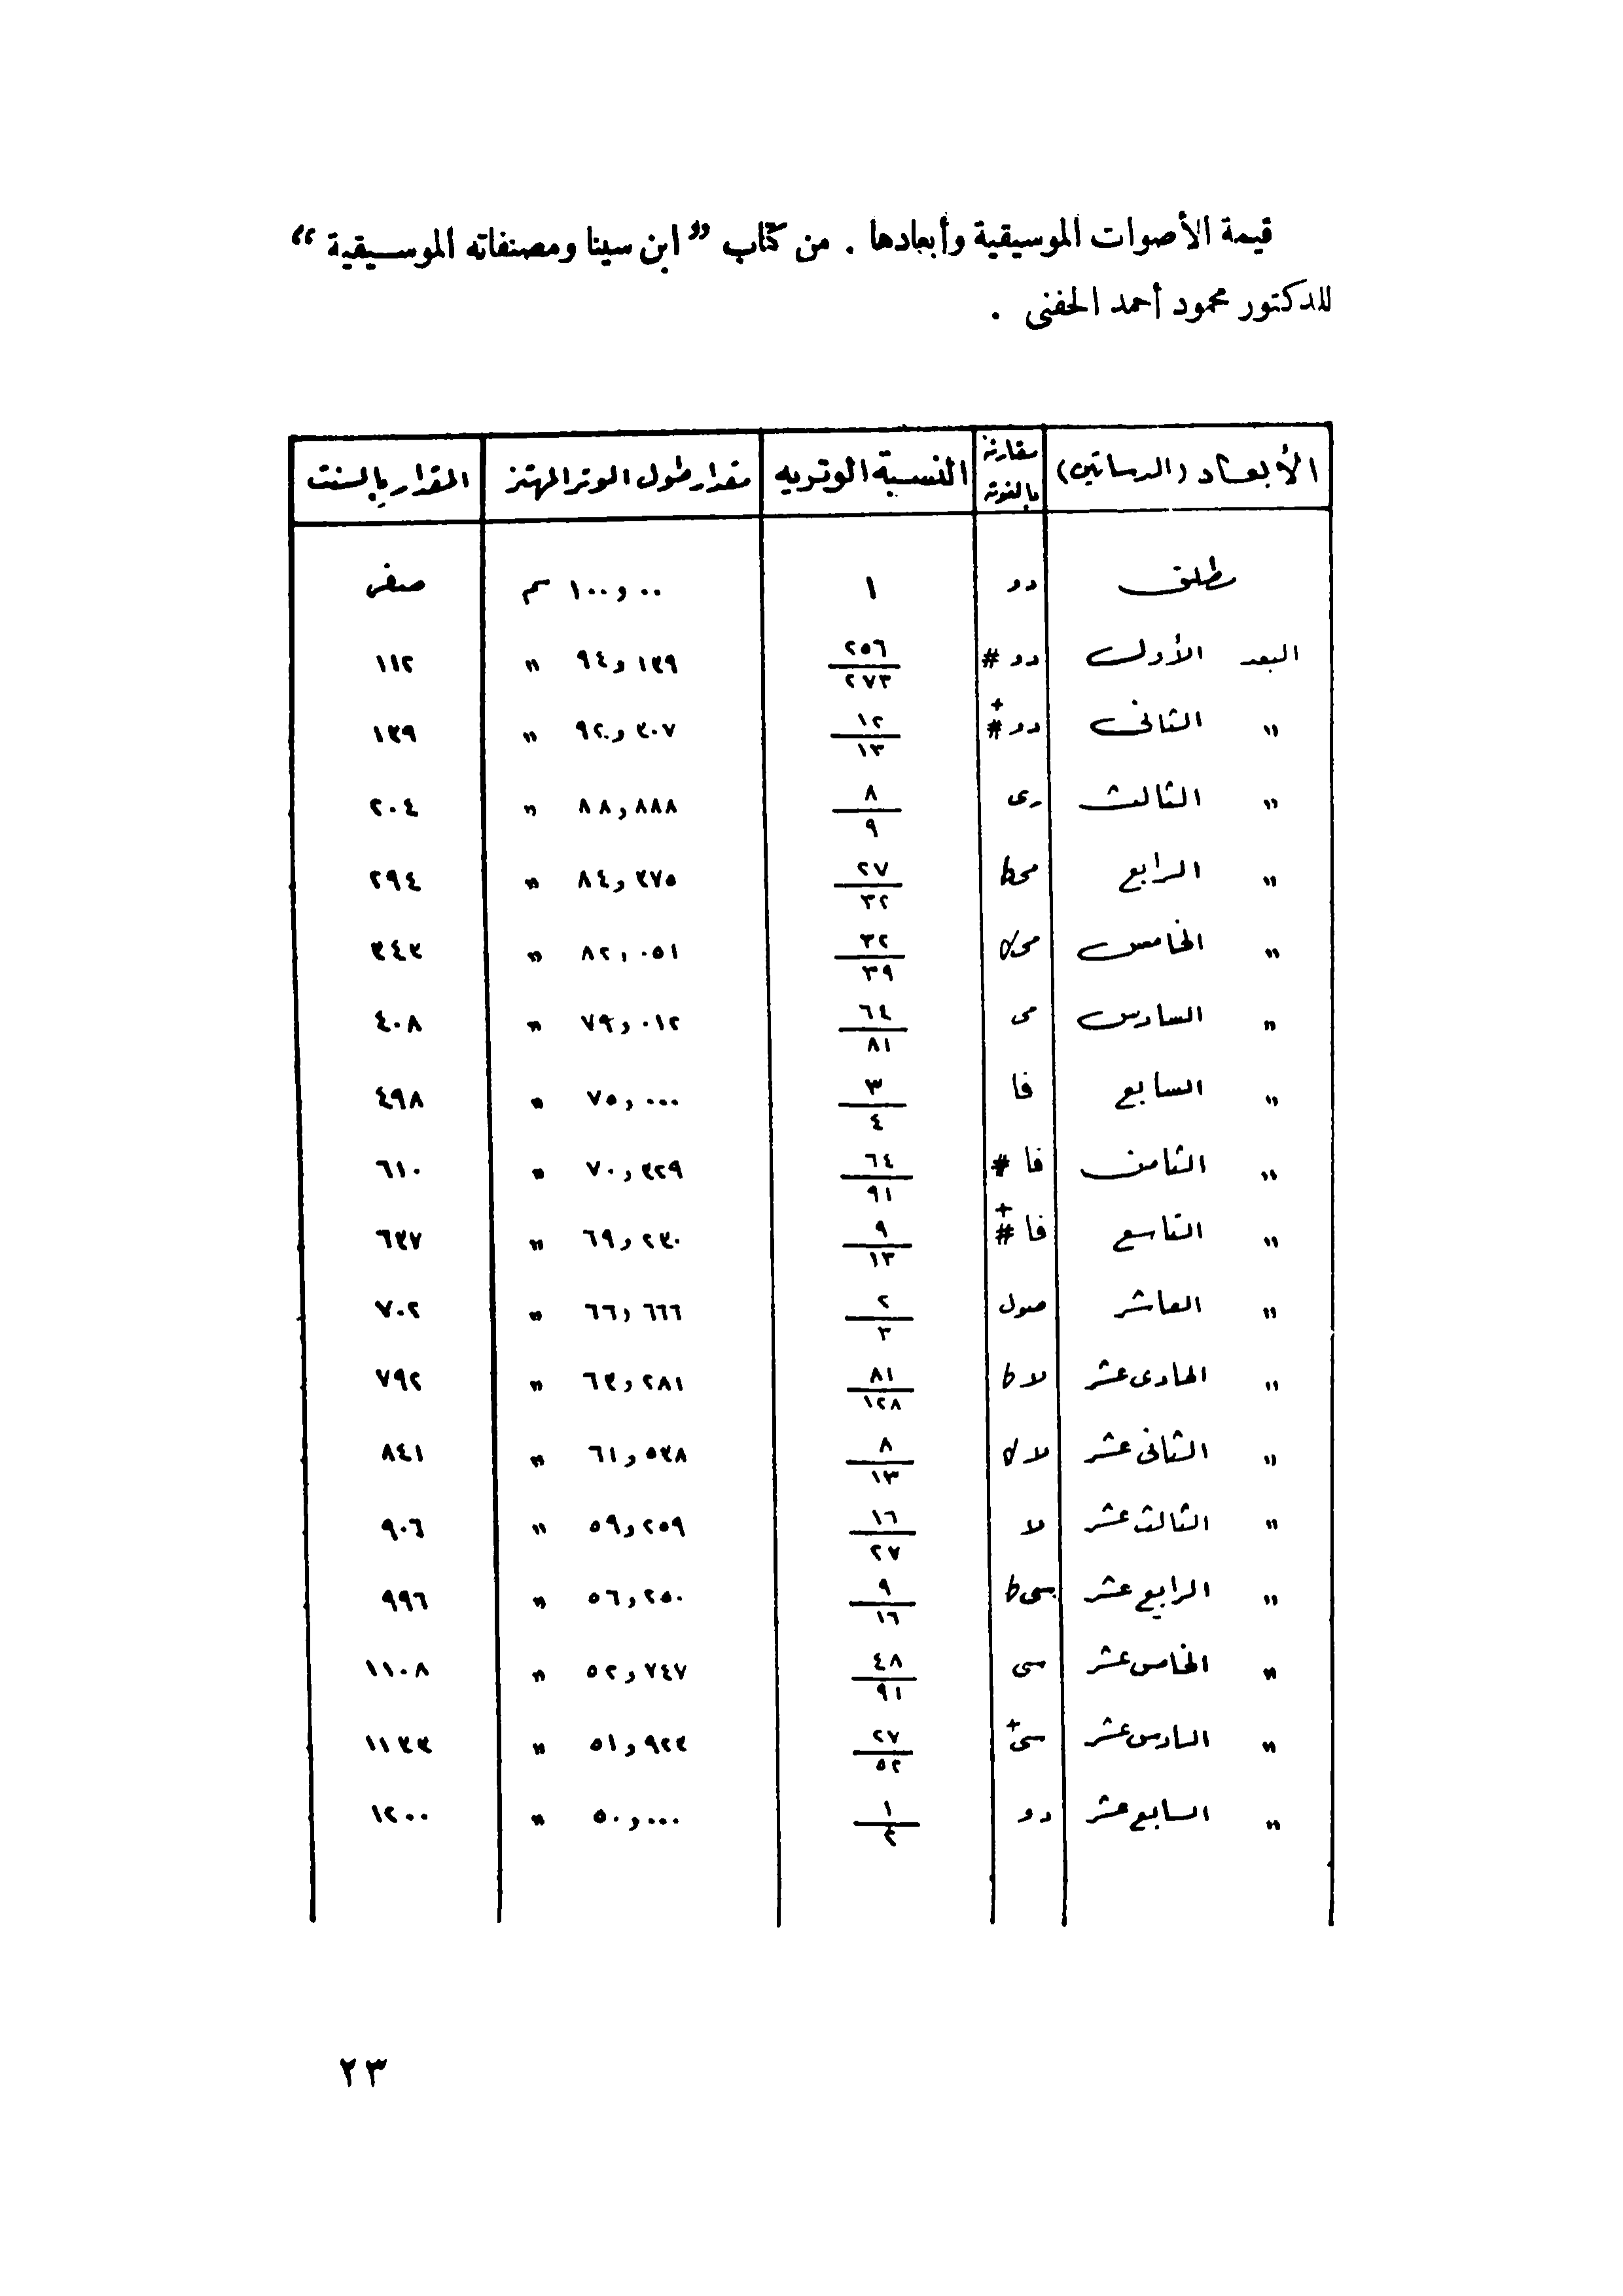 قيمة الأصوات الموسيقية وأبعادها . من كتاب ” ابن سينا ومصنفاته الموسيقية “
للدكتور محمود أحمد الحفنى .
الأبعاد (الدساتين) مقارنة بالنوته النسبة الوتريه مقدار طول الوتر المهتز المقدار بالسنت
مطلق دو ١ ١٠٠و٠٠ سم صفر
البعد الأول دو # ٢٥٦/٢٧٣ ٩٤و١٣٩ " ١١٢
" الثانى دو #+ ١٢/١٣ ٩٢و٣٠٧ " ١٣٩
" الثالث رى ٨/٩ ٨٨و٨٨٨ " ٢٠٤
" الرابع مى b ٢٧/٣٢ ٨٤و٣٧٥ " ٢٩٤
" الخامس مى ٣٢/٣٩ ٨٢,٠٥١ " ٣٤٣
" السادس مى ٦٤/٨١ ٧٩و٠١٢ " ٤٠٨
" السابع فا ٣/٤ ٧٥و٠٠٠ " ٤٩٨
" الثامن فا # ٦٤/٩١ ٧٠و٣٢٩ " ٦١٠
" التاسع فا #+ ٩/١٣ ٦٩و٢٣٠ " ٦٣٧
" العاشر صول ٢/٣ ٦٦و٦٦٦ " ٧٠٢
" الحادى عشر لا b ٨١/١٢٨ ٦٣و٢٨١ " ٧٩٢
" الثانى عشر لا ٨/١٣ ٦١و٥٣٨ " ٨٤١
" الثالث عشر لا ١٦/٢٧ ٥٩و٢٥٩ " ٩٠٦
" الرابع عشر سى b ٩/١٦ ٥٦و٢٥٠ " ٩٩٦
" الخامس عشر سى ٤٨/٩١ ٥٢و٧٤٧ " ١١٠٨
" السادس عشر سى+ ٢٧/٥٢ ٥١و٩٢٣ " ١١٣٣
" السابع عشر دو ١/٢ ٥٠و٠٠٠ " ١٢٠٠
٢٣